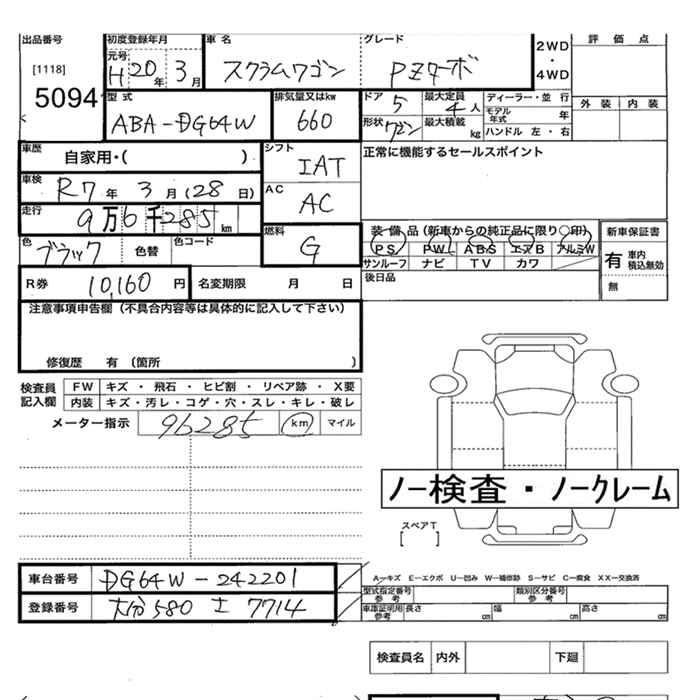 出品番号 初度登録年月 車 名 グレード 評 価 点
[1118] 元号 H 20 年 3 月 スクラムワゴン PZターボ 2WD・4WD
5094 型 式 排気量又はkw ドア 5 最大定員 4 人 ディーラー・並 行 外 装 内 装
ABA-DG64W 660 形状 ワゴン 最大積載 kg モデル年式 年
ハンドル 左・右
車歴 自家用・( ) シフト IAT 正常に機能するセールスポイント
車検 R7 年 3 月 (28 日) AC AC
走行 9 万 6 千 285 km 燃料 G 装 備 品 (新車からの純正品に限り○印) 新車保証書
色 ブラック 色替 色コード PS PW ABS エアB アルミW 有 車内積込無効
サンルーフ ナビ TV カワ
R券 10,160 円 名変期限 月 日 後日品 無
注意事項申告欄 (不具合内容等は具体的に記入して下さい)
修復歴 有 (箇所 )
検査員記入欄 FW キズ ・ 飛石 ・ ヒビ割 ・ リペア跡 ・ X要
内装 キズ・汚レ・コゲ・穴・スレ・キレ・破レ
メーター指示 96285 km マイル
ノー検査・ノークレーム
スペアT
[ ]
車台番号 DG64W-242201 A-キズ E-エクボ U-凹ミ W-補修跡 S-サビ C-腐食 XX-交換済
型式指定番号 参 考 類別区分番号 参 考
登録番号 大分 580 す 7714 車庫証明用 参考 長さ cm 幅 cm 高さ cm
検査員名 内外 下廻